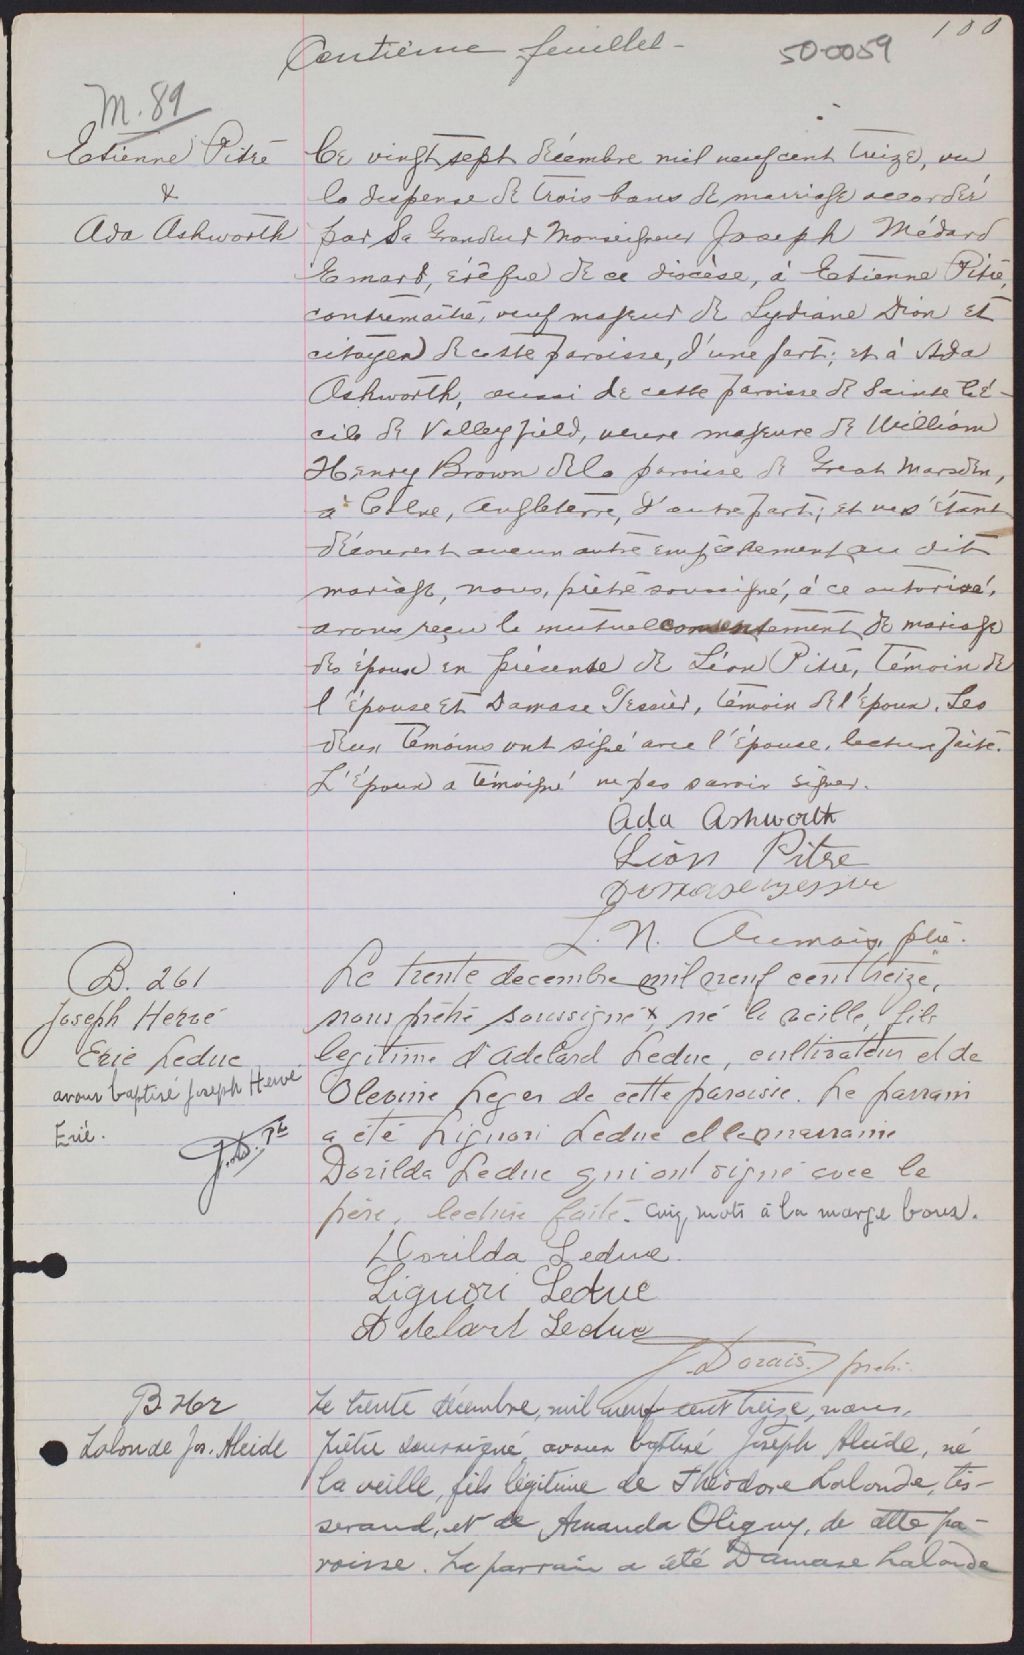 100
Centième feuillet -
50-0059
M. 89
Etienne Pitre
&
Ada Ashworth
Ce vingt sept décembre mil neuf cent treize, vu
la dispense de trois bans de mariage accordée
par Sa Grandeur Monseigneur Joseph Médard
Emard, évêque de ce diocèse, à Etienne Pitre,
contremaître, veuf majeur de Lydiane Dion et
citoyen de cette paroisse, d'une part; et à Ada
Ashworth, aussi de cette paroisse de Sainte Cé-
cile de Valleyfield, veuve majeure de William
Henry Brown de la paroisse de Great Marsden,
à Colne, Angleterre, d'autre part; et ne s'étant
découvert aucun autre empêchement au dit
mariage, nous, prêtre soussigné, à ce autorisé,
avons reçu le mutuel consentement de mariage
des époux en présence de Léon Pitre, témoin de
l'épouse et Damase Tessier, témoin de l'époux. Les
deux témoins ont signé avec l'épouse, lecture faite.
L'époux a témoigné ne pas savoir signer.
Ada Ashworth
Léon Pitre
Damase Tessier
L. N. Aumais, ptre.
B. 261
Joseph Hervé
Eric Leduc
avons baptisé Joseph Hervé
Erié.
J.D. Ptr
Le trente decembre mil neuf cent treize,
nous prêtre soussigné x, né la veille, fils
legitime d'Adelard Leduc, cultivateur et de
Olevine Leger de cette paroisse. Le parrain
a été Liguori Leduc et la marraine
Dorilda Leduc qui ont signé avec le
père, lecture faite. Cinq mots à la marge bons.
Dorilda Leduc.
Liguori Leduc
Adelart Leduc
J. Dorais, prêtre
B 262
Lalonde Jos. Aleide
Le trente décembre, mil neuf cent treize, nous,
prêtre soussigné avons baptisé Joseph Aleide, né
la veille, fils légitime de Théodore Lalonde, tis-
serand, et de Amanda Oligny, de cette pa-
roisse. Le parrain a été Damase Lalonde